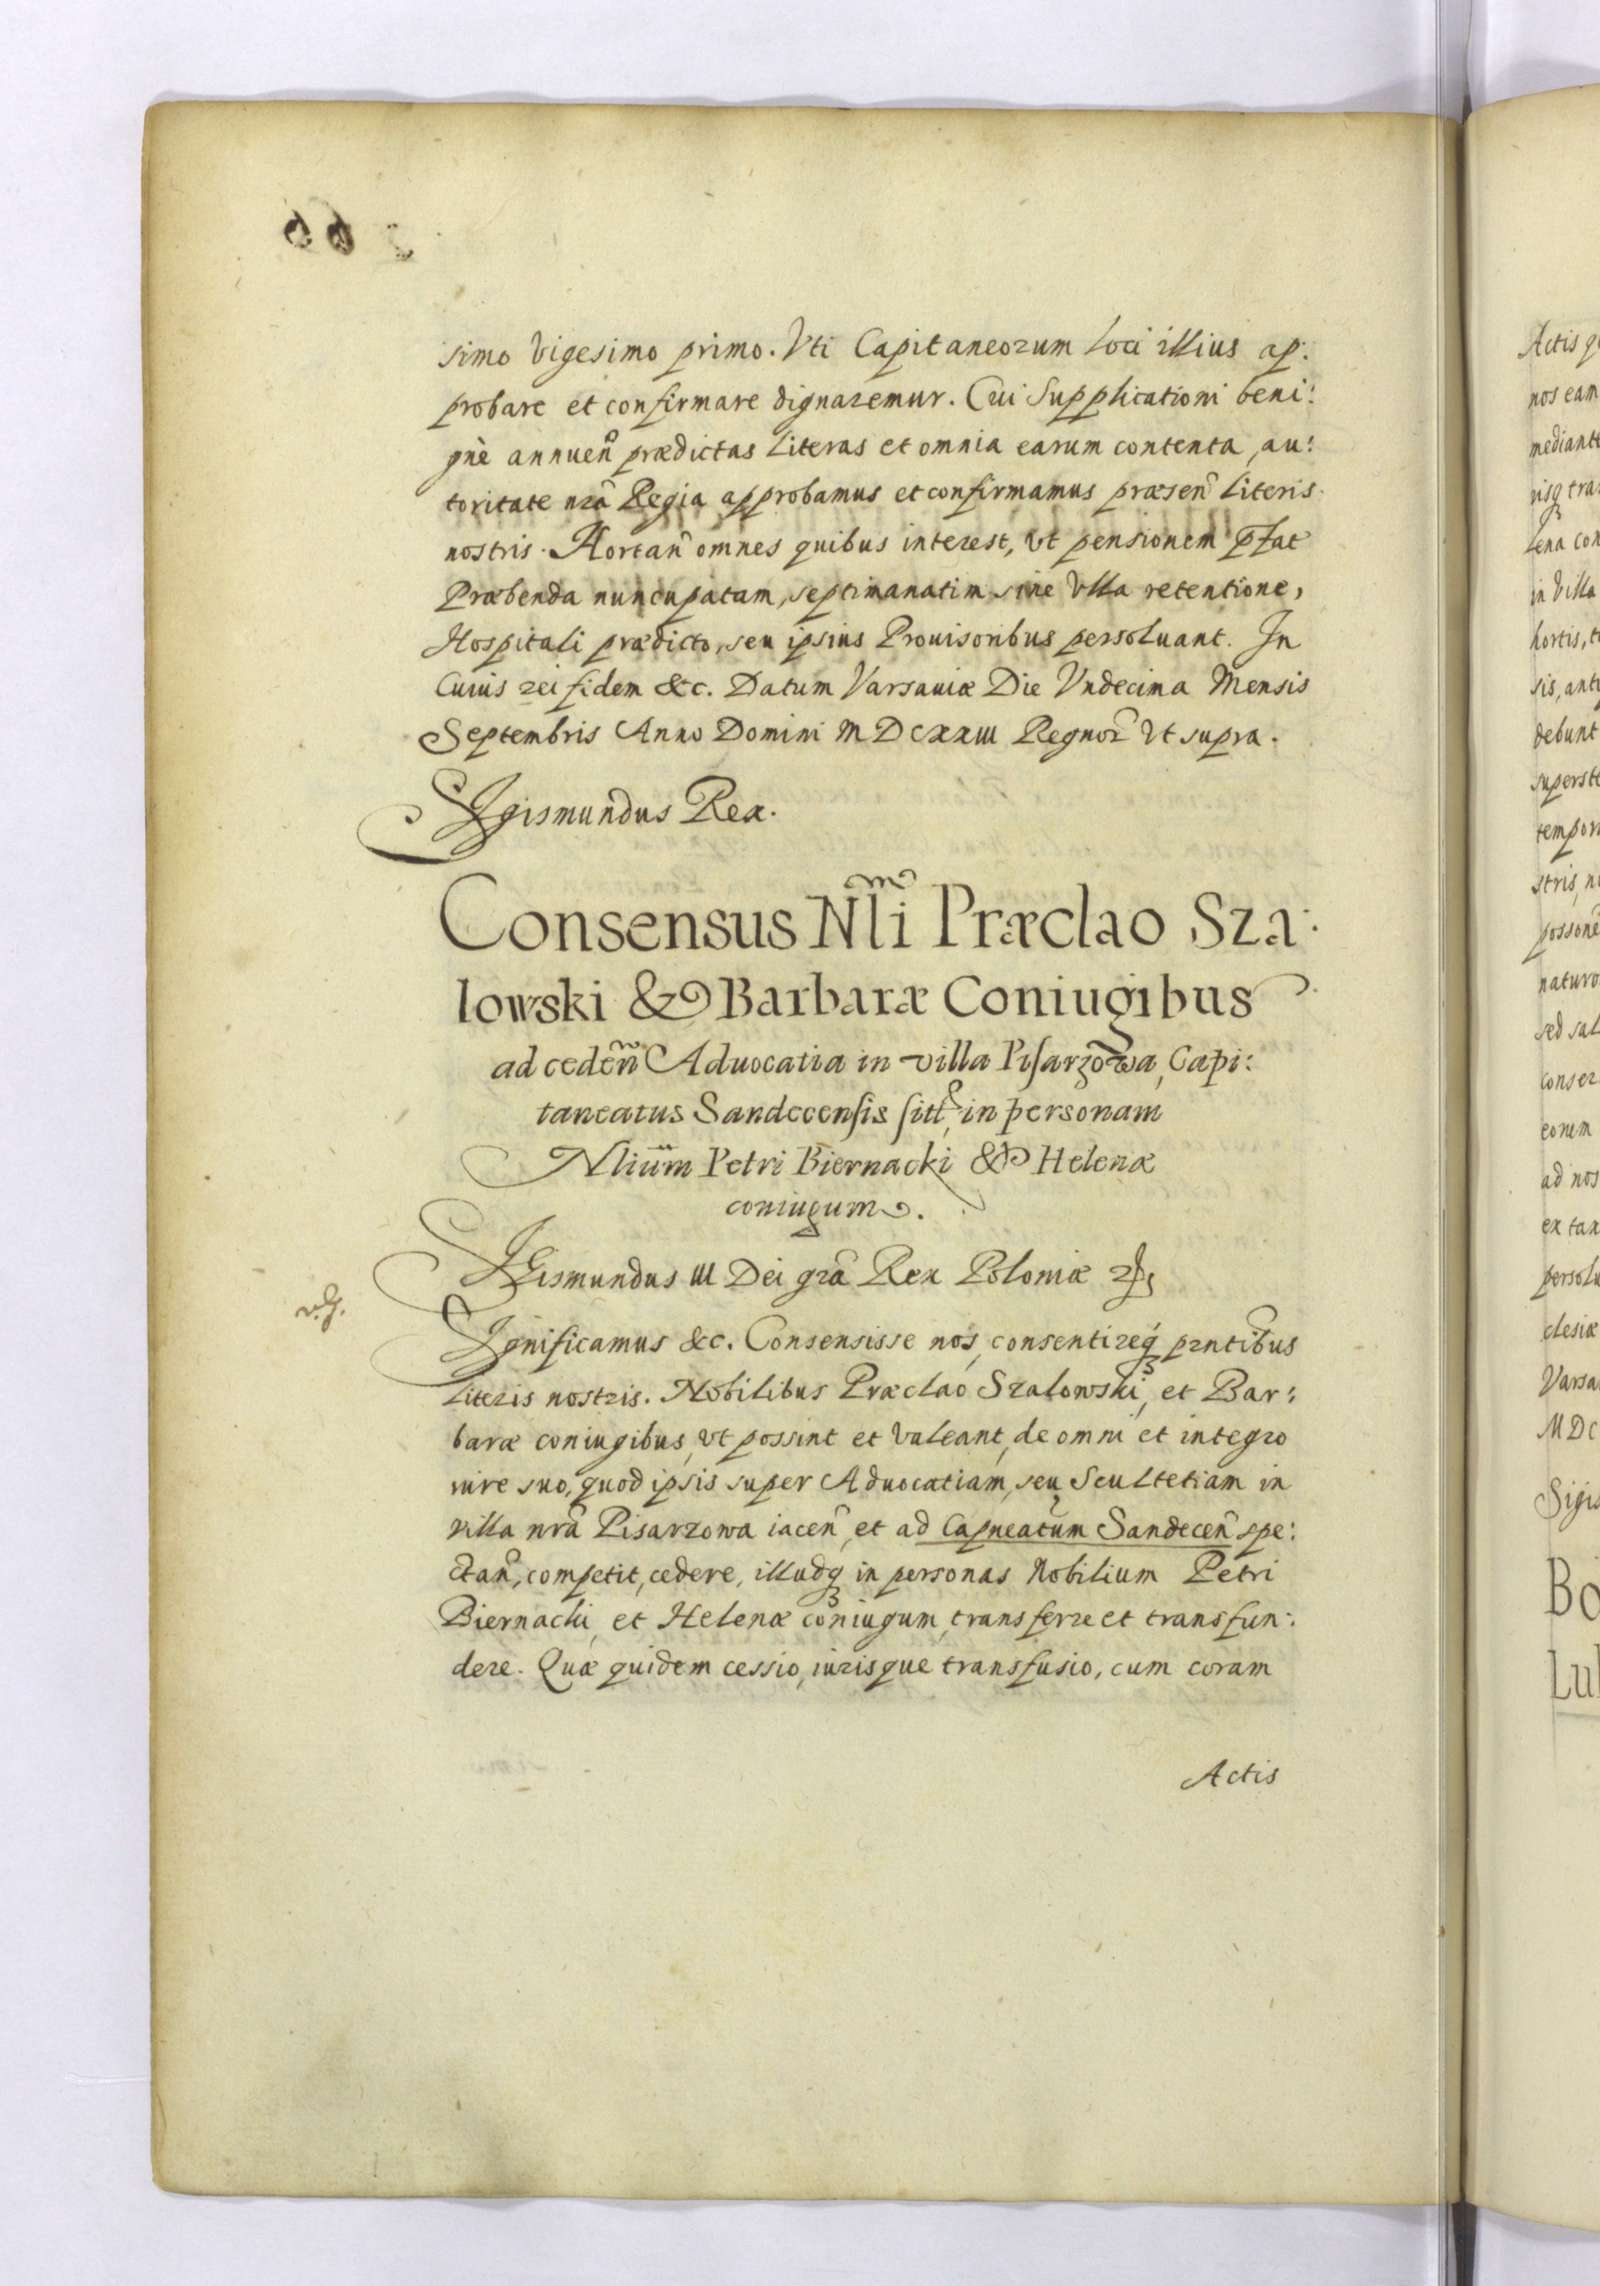 simo vigesimo primo. Vti Capitaneorum loci illius ap:
probare et confirmare dignaremur. Cui Supplicationi beni:
gnè annuen̄ prædictas literas et omnia earum contenta, au:
toritate nrā Regia approbamus et confirmamus præsen̄ literis
nostris. Hortan̄ omnes quibus interest, vt pensionem
Præbenda nuncupatam, septimanatim sine vlla retentione,
Hospitali prædicto, seu ipsius Prouisoribus persoluant. In
Cuius rei fidem &c. Datum Varsauiæ Die Vndecima Mensis
Septembris Anno Domini MDCXXIII Regnor̄ vt supra.
SIgismundus Rex.
Consensus Nli Præclao Sza:
lowski & Barbaræ Coniugibus
ad ceden̄ Aduocatia in villa Pisarzowa, Capi:
taneatus Sandecensis sitt, in personam
Nliūm Petri Biernacki & Helenæ
coniugum.
SIGismundus III Dei grā Rex Poloniæ
SIgnificamus &c. Consensisse nos, consentireq; prntibus
literis nostris. Nobilibus Præclao Szalowski, et Bar:
baræ coniugibus, vt possint et valeant, de omni et integro
iure suo, quod ipsis super Aduocatiam, seu Scultetiam in
villa nrā Pisarzowa iacen̄, et ad Capneatum Sandecen̄ spe:
ctan̄, competit, cedere, illudq; in personas Nobilium Petri
Biernacki, et Helenæ coniugum, transferre et transfun:
dere. Quæ quidem cessio, iurisque transfusio, cum coram
Actis